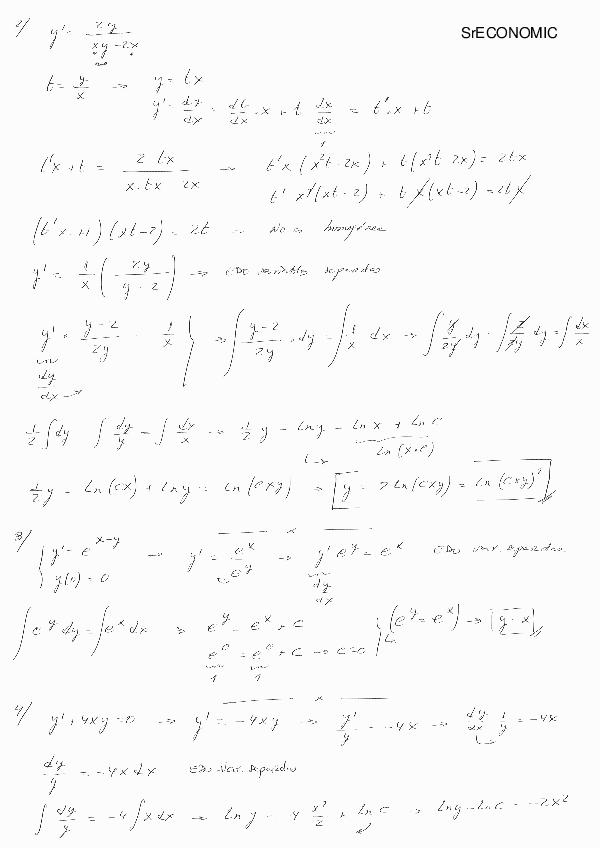 SrECONOMIC
2/ y' = 2y / (xy - 2x)
t = y/x → y = tx
y' = dy/dx = dt/dx · x + t dx/dx = t'·x + t
1
t'x + t = 2tx / (x·tx - 2x) → t'x (x²t - 2x) + t(x²t - 2x) = 2tx
t' x²(xt - 2) + t x(xt - 2) = 2tx
(t'x + 1)(xt - 2) = 2t → No es homogénea
y' = 1/x (2y / (y - 2)) → EDO variables separadas
y' · (y - 2)/2y = 1/x } → ∫ (y - 2)/2y · dy = ∫ 1/x dx → ∫ y/2y dy - ∫ 2/2y dy = ∫ dx/x
dy/dx
1/2 ∫dy - ∫ dy/y = ∫ dx/x → 1/2 y - ln y = ln x + ln c
ln (x·c)
1/2 y = ln(cx) + ln y = ln(cxy) → y = 2 ln(cxy) = ln(cxy)²
3/ { y' = e^(x-y) → y' = e^x / e^y → y' e^y = e^x EDO var. separadas
y(0) = 0
dy/dx
∫ e^y dy = ∫ e^x dx → e^y = e^x + c } ln (e^y = e^x) → y = x
e^0 = e^0 + c → c = 0
1 1
4/ y' + 4xy = 0 → y' = -4xy → y'/y = -4x → dy/dx · 1/y = -4x
dy/y = -4x dx EDO var. separadas
∫ dy/y = -4 ∫ x dx → ln y = -4 x²/2 + ln c → ln y - ln c = -2x²